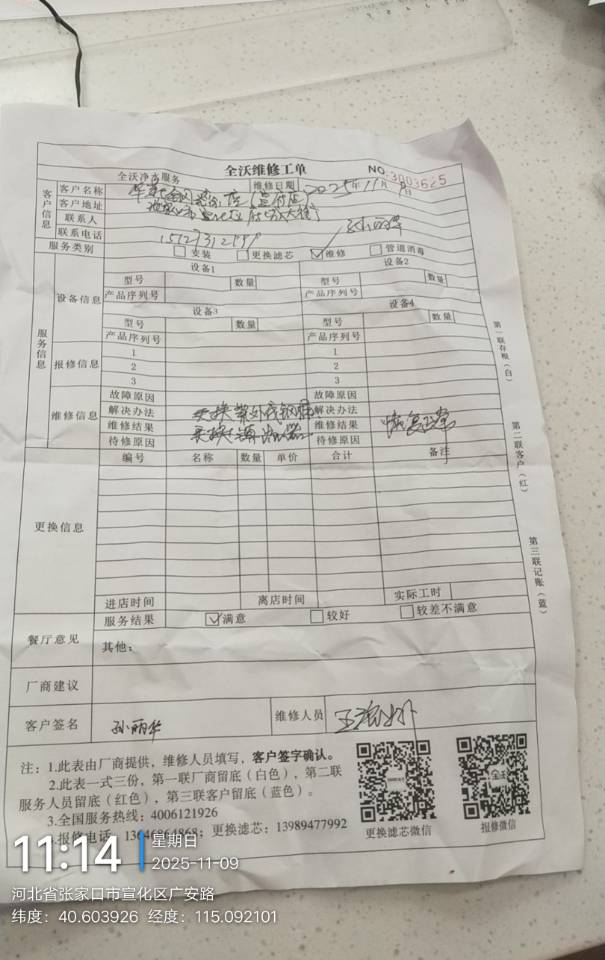 全沃维修工单
全沃净商服务 维修日期 2025年11月9日
NO.3003625
客户信息
客户名称
客户地址
联系人 孙丽华
联系电话
服务类别 安装 更换滤芯 ☑维修 管道消毒
服务信息
设备信息
设备1 设备2
型号 数量 型号 数量
产品序列号 产品序列号
设备3 设备4
型号 数量 型号 数量
产品序列号 产品序列号
报修信息
1 1
2 2
3 3
维修信息
故障原因 故障原因
解决办法 更换紫外线 解决办法
维修结果 更换 维修结果 恢复正常
待修原因 待修原因
更换信息
编号 名称 数量 单价 合计 备注
进店时间 离店时间 实际工时
餐厅意见
服务结果 ☑满意 较好 较差不满意
其他:
厂商建议
客户签名 孙丽华 维修人员
注:1.此表由厂商提供,维修人员填写,客户签字确认。
2.此表一式三份,第一联厂商留底(白色),第二联
服务人员留底(红色),第三联客户留底(蓝色)。
3.全国服务热线:4006121926
报修电话:更换滤芯:13989477992
更换滤芯微信 报修微信
第一联存根(白)
第二联客户(红)
第三联记账(蓝)
11:14
星期日
2025-11-09
河北省张家口市宣化区广安路
纬度:40.603926 经度:115.092101